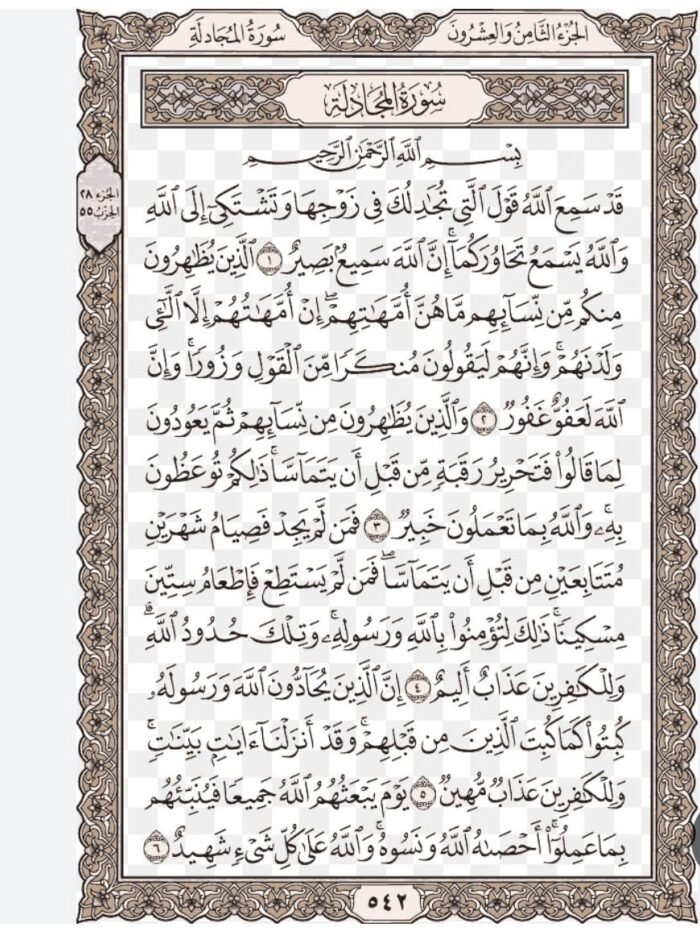 الجُزْءُ الثَّامِنُ وَالعِشْرُونَ
سُورَةُ المُجَادلَةِ
سُورَةُ المُجَادلَةِ
الجزء ٢٨
الحزب ٥٥
بِسْمِ ٱللَّهِ ٱلرَّحْمَٰنِ ٱلرَّحِيمِ
قَدْ سَمِعَ ٱللَّهُ قَوْلَ ٱلَّتِي تُجَٰدِلُكَ فِي زَوْجِهَا وَتَشْتَكِيٓ إِلَى ٱللَّهِ
وَٱللَّهُ يَسْمَعُ تَحَاوُرَكُمَآۚ إِنَّ ٱللَّهَ سَمِيعُۢ بَصِيرٌ ١ ٱلَّذِينَ يُظَٰهِرُونَ
مِنكُم مِّن نِّسَآئِهِم مَّا هُنَّ أُمَّهَٰتِهِمْۖ إِنْ أُمَّهَٰتُهُمْ إِلَّا ٱلَّٰٓـِٔي
وَلَدْنَهُمْۚ وَإِنَّهُمْ لَيَقُولُونَ مُنكَرًا مِّنَ ٱلْقَوْلِ وَزُورًاۚ وَإِنَّ
ٱللَّهَ لَعَفُوٌّ غَفُورٌ ٢ وَٱلَّذِينَ يُظَٰهِرُونَ مِن نِّسَآئِهِمْ ثُمَّ يَعُودُونَ
لِمَا قَالُوا۟ فَتَحْرِيرُ رَقَبَةٍ مِّن قَبْلِ أَن يَتَمَآسَّاۚ ذَٰلِكُمْ تُوعَظُونَ
بِهِۦۚ وَٱللَّهُ بِمَا تَعْمَلُونَ خَبِيرٌ ٣ فَمَن لَّمْ يَجِدْ فَصِيَامُ شَهْرَيْنِ
مُتَتَابِعَيْنِ مِن قَبْلِ أَن يَتَمَآسَّاۖ فَمَن لَّمْ يَسْتَطِعْ فَإِطْعَامُ سِتِّينَ
مِسْكِينًاۚ ذَٰلِكَ لِتُؤْمِنُوا۟ بِٱللَّهِ وَرَسُولِهِۦۚ وَتِلْكَ حُدُودُ ٱللَّهِۗ
وَلِلْكَٰفِرِينَ عَذَابٌ أَلِيمٌ ٤ إِنَّ ٱلَّذِينَ يُحَآدُّونَ ٱللَّهَ وَرَسُولَهُۥ
كُبِتُوا۟ كَمَا كُبِتَ ٱلَّذِينَ مِن قَبْلِهِمْۚ وَقَدْ أَنزَلْنَآ ءَايَٰتٍۭ بَيِّنَٰتٍۚ
وَلِلْكَٰفِرِينَ عَذَابٌ مُّهِينٌ ٥ يَوْمَ يَبْعَثُهُمُ ٱللَّهُ جَمِيعًا فَيُنَبِّئُهُم
بِمَا عَمِلُوٓا۟ۚ أَحْصَىٰهُ ٱللَّهُ وَنَسُوهُۚ وَٱللَّهُ عَلَىٰ كُلِّ شَىْءٍ شَهِيدٌ ٦
٥٤٢